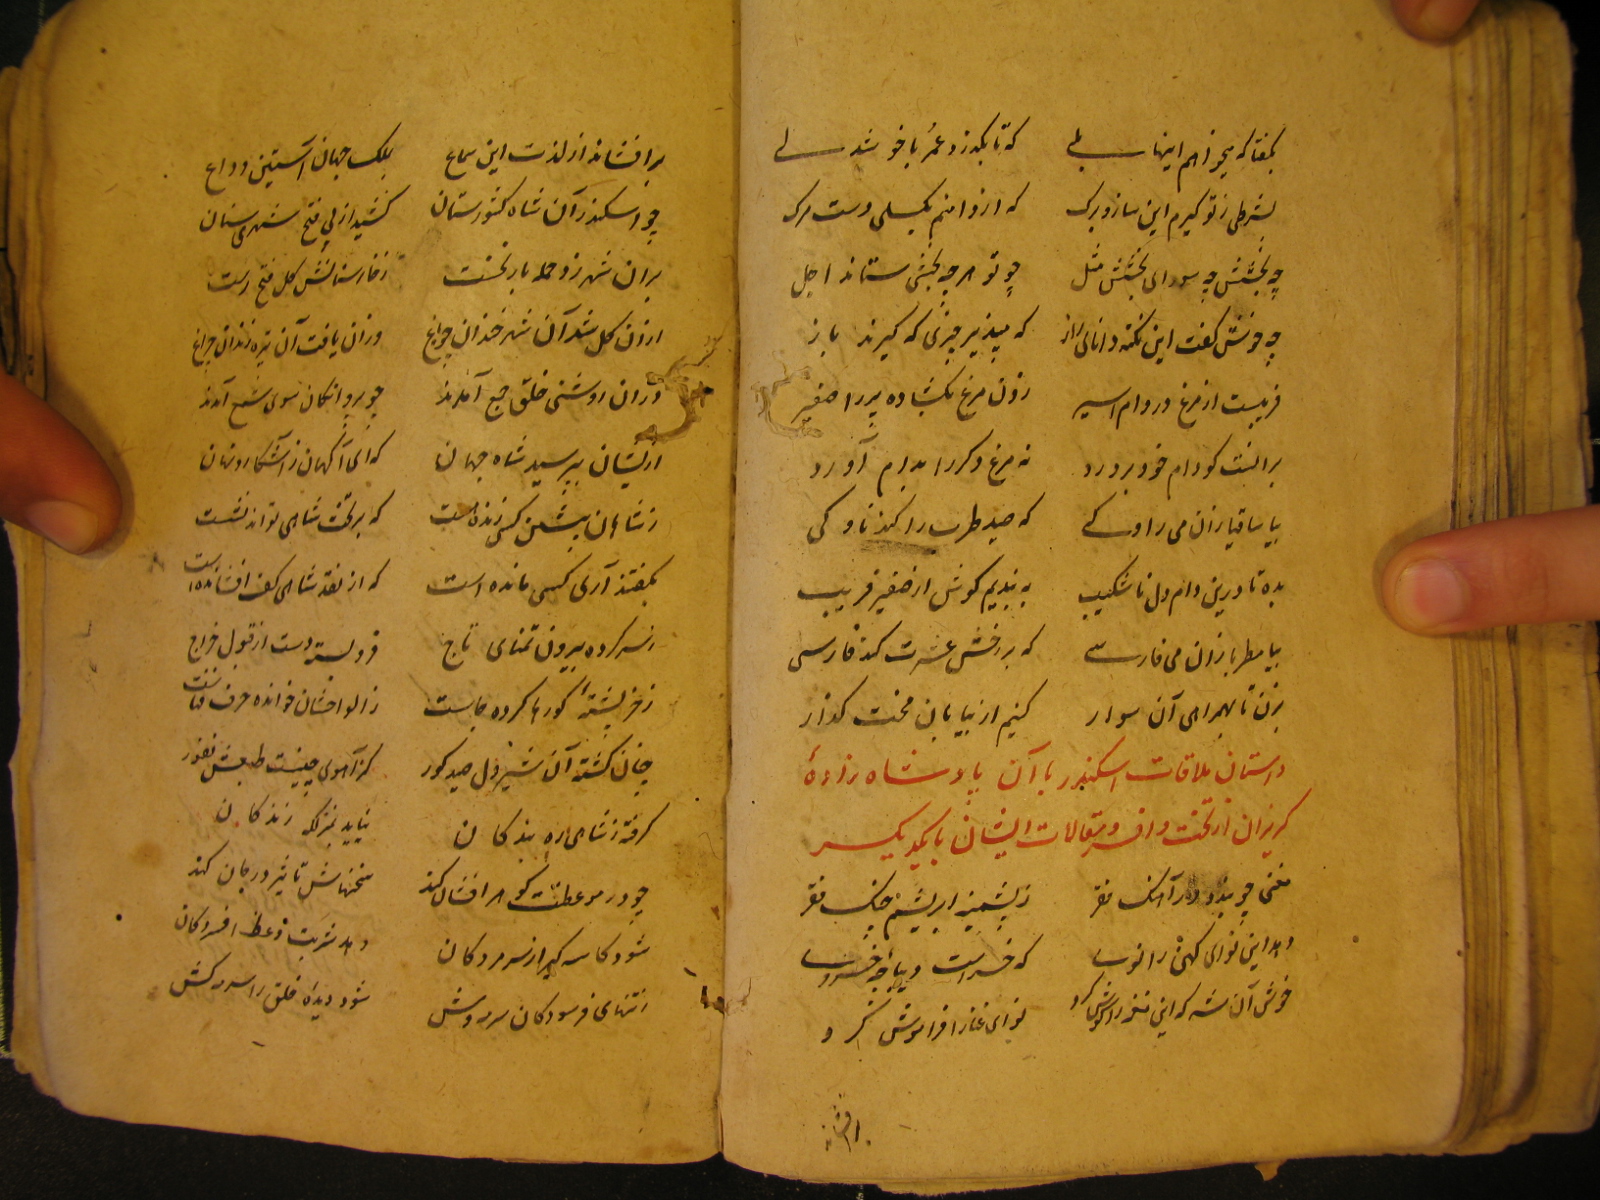 بگفتا که میخواهم اینها بلے که تا بگذرد عمر با خوشدلے
بشرطی ز تو گیرم این ساز و برک که از دامنم بگسلی دست مرک
چه بخشش چه سودای بخشش مثل چو تو هر چه بخشی ستاند اجل
چه خوش گفت این نکته دانای راز که مپذیر چیزی که گیرند باز
فریبست از مرغ در دام اسیر زدن مرغ بگشاده پر را صفیر
برانست کو دام خود بر درد نه مرغ دکر را بدام آورد
بیا ساقیا زان می راوکے که صید طرب را کند ناوکی
بده تا درین دام دل ناشکیب ببندیم کوش از صفیر فریب
بیا مطربا زان می فارسے که بر رخش عشرت کند فارسی
بزن تا بهمراهی آن سوار کنیم از بیابان محنت کذار
داستان ملاقات اسکندر با آن پادشاه زادهٔ
کریزان از تخت و افسر و مقالات ایشان با یکدیکر
مغنی چو بندد در آهنک فقر ز پشمینه ابریشم چنک فقر
دهد این نوای کهن را نوے که خسراست دیباچه خسروے
خوش آن شه که این نغمه را کوش کرد نوای غنا را فراموش کرد
برافشاند
برافشاند از لذت این سماع بملک جهان آستین وداع
چو اسکندر آن شاه کشورستان کشید از پی فتح شهری سنان
بران شهر زد حمله باد نخست ز خارستانش کل فتح رست
ازان کل شد آن شهر خندان چو باغ وزان یافت آن تیره زندان چراغ
دران روشنی خلق جمع آمدند چو پروانکان سوی شمع آمدند
ازیشان بپرسید شاه جهان که ای آکهان ز آشکار و نهان
ز شاهان پیشین کسی زنده است که بر تخت شاهی تواند نشست
بکفتند آری کسی مانده است که از نقد شاهی کف افشانده است
ز سر کرده بیرون تمنای تاج فروبسته دست از قبول خراج
ز خرپشتهٔ کورها کرده جاست ز الواحشان خوانده حرف فناست
چنان کشته آن شیردل صید کور کز آهوی چینست طبعش نفور
کرفته ز شاهی ره بندکان نیاید بنزلکه زندکان
چو در موعظت کوهر افشان کند سخنهاش تاثیر در جان کند
شود کاسه کیر از سر مردکان دهد شربت وعظ افسردکان
ز تنهای فرسودکان سرمه‌وش شود دیدهٔ خلق را سرمه کش